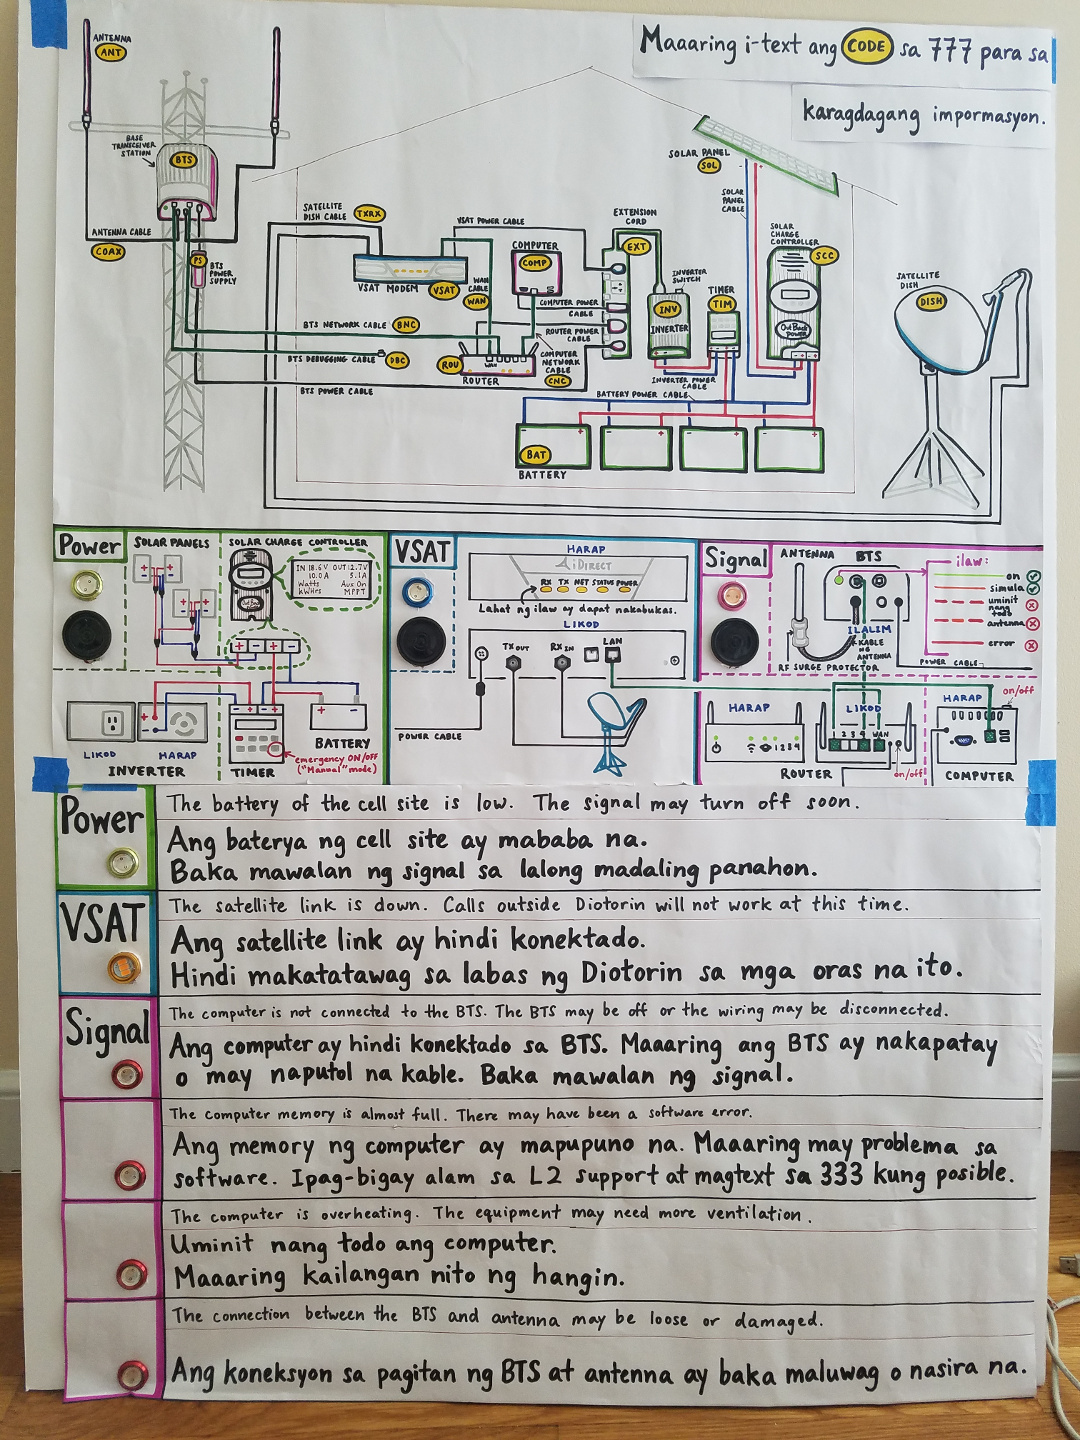 Maaaring i-text ang CODE sa 777 para sa
karagdagang impormasyon.
ANTENNA
ANT
BASE
TRANSCEIVER
STATION
BTS
ANTENNA CABLE
COAX
PS
BTS
POWER
SUPPLY
SATELLITE
DISH CABLE
TXRX
VSAT POWER CABLE
VSAT MODEM
VSAT
WAN
CABLE
WAN
COMPUTER
COMP
EXTENSION
CORD
EXT
COMPUTER POWER
CABLE
ROUTER POWER
CABLE
COMPUTER
NETWORK
CABLE
CNC
BTS NETWORK CABLE
BNC
BTS DEBUGGING CABLE
DBC
BTS POWER CABLE
ROU
WAN
ROUTER
INVERTER
SWITCH
INV
INVERTER
TIMER
TIM
INVERTER POWER
CABLE
BATTERY POWER CABLE
BAT
BATTERY
SOLAR PANEL
SOL
SOLAR
PANEL
CABLE
SOLAR
CHARGE
CONTROLLER
SCC
OutBack
Power
SATELLITE
DISH
DISH
Power
SOLAR PANELS
SOLAR CHARGE CONTROLLER
IN 18.6V OUT 12.7V
10.0 A 5.1A
Watts Aux On
kWHrs MPPT
OutBack
LIKOD
HARAP
INVERTER
TIMER
BATTERY
emergency ON/OFF
("Manual" mode)
VSAT
HARAP
iDIRECT
RX TX NET STATUS POWER
Lahat ng ilaw ay dapat nakabukas.
LIKOD
TX OUT
RX IN
LAN
POWER CABLE
Signal
ANTENNA
BTS
ilaw:
on
simula
uminit
nang
todo
antenna
error
ILALIM
KABLE
NG
ANTENNA
RF SURGE PROTECTOR
POWER CABLE
HARAP
1 2 3 4
LIKOD
1 2 3 4 WAN
on/off
ROUTER
HARAP
on/off
COMPUTER
Power
The battery of the cell site is low. The signal may turn off soon.
Ang baterya ng cell site ay mababa na.
Baka mawalan ng signal sa lalong madaling panahon.
VSAT
The satellite link is down. Calls outside Diotorin will not work at this time.
Ang satellite link ay hindi konektado.
Hindi makatatawag sa labas ng Diotorin sa mga oras na ito.
Signal
The computer is not connected to the BTS. The BTS may be off or the wiring may be disconnected.
Ang computer ay hindi konektado sa BTS. Maaaring ang BTS ay nakapatay
o may naputol na kable. Baka mawalan ng signal.
The computer memory is almost full. There may have been a software error.
Ang memory ng computer ay mapupuno na. Maaaring may problema sa
software. Ipag-bigay alam sa L2 support at magtext sa 333 kung posible.
The computer is overheating. The equipment may need more ventilation.
Uminit nang todo ang computer.
Maaaring kailangan nito ng hangin.
The connection between the BTS and antenna may be loose or damaged.
Ang koneksyon sa pagitan ng BTS at antenna ay baka maluwag o nasira na.